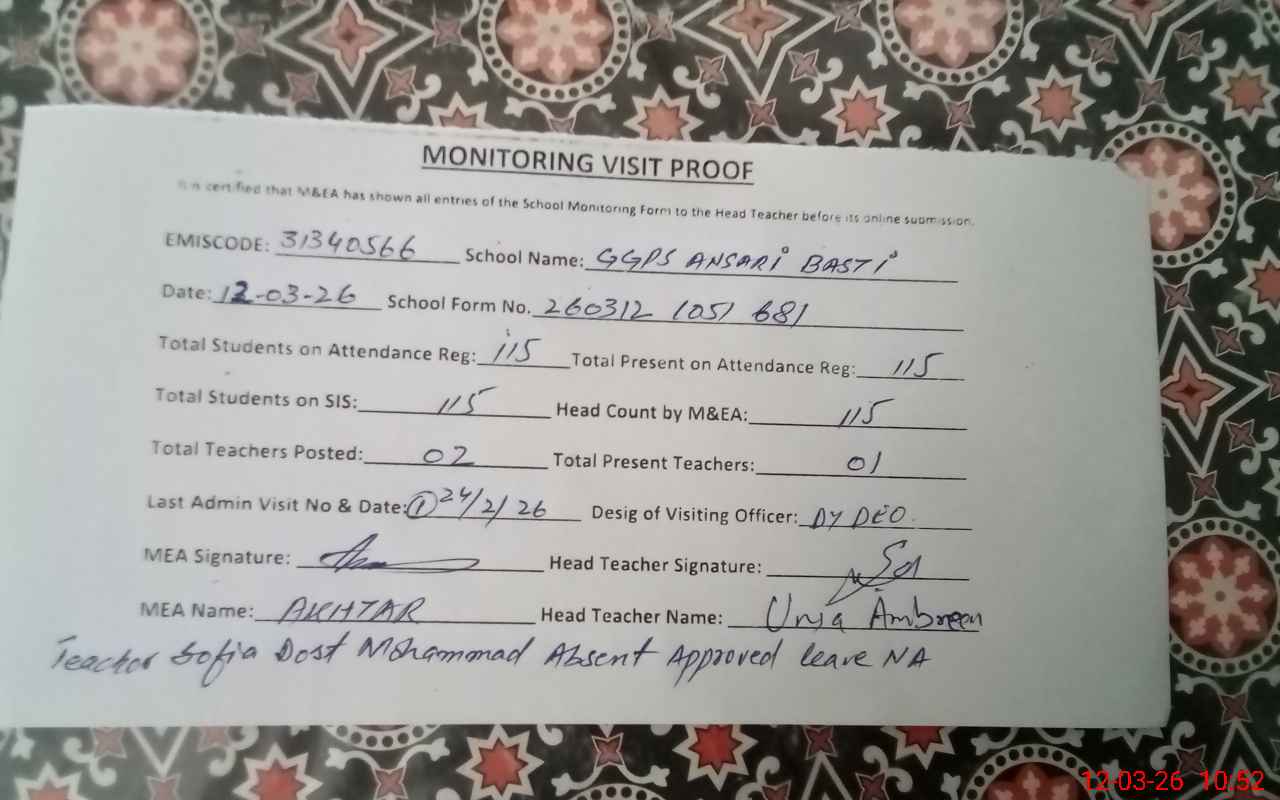 MONITORING VISIT PROOF
It is certified that M&EA has shown all entries of the School Monitoring Form to the Head Teacher before its online submission.
EMISCODE: 31340566 School Name: GGPS ANSARI BASTI
Date: 12-03-26 School Form No. 260312 1051 681
Total Students on Attendance Reg: 115 Total Present on Attendance Reg: 115
Total Students on SIS: 115 Head Count by M&EA: 115
Total Teachers Posted: 02 Total Present Teachers: 01
Last Admin Visit No & Date: ① 24/2/26 Desig of Visiting Officer: DY DEO.
MEA Signature: Head Teacher Signature:
MEA Name: AKHTAR Head Teacher Name: Ambreen
Teacher Sofia Dost Mohammad Absent Approved leave NA
12-03-26 10:52